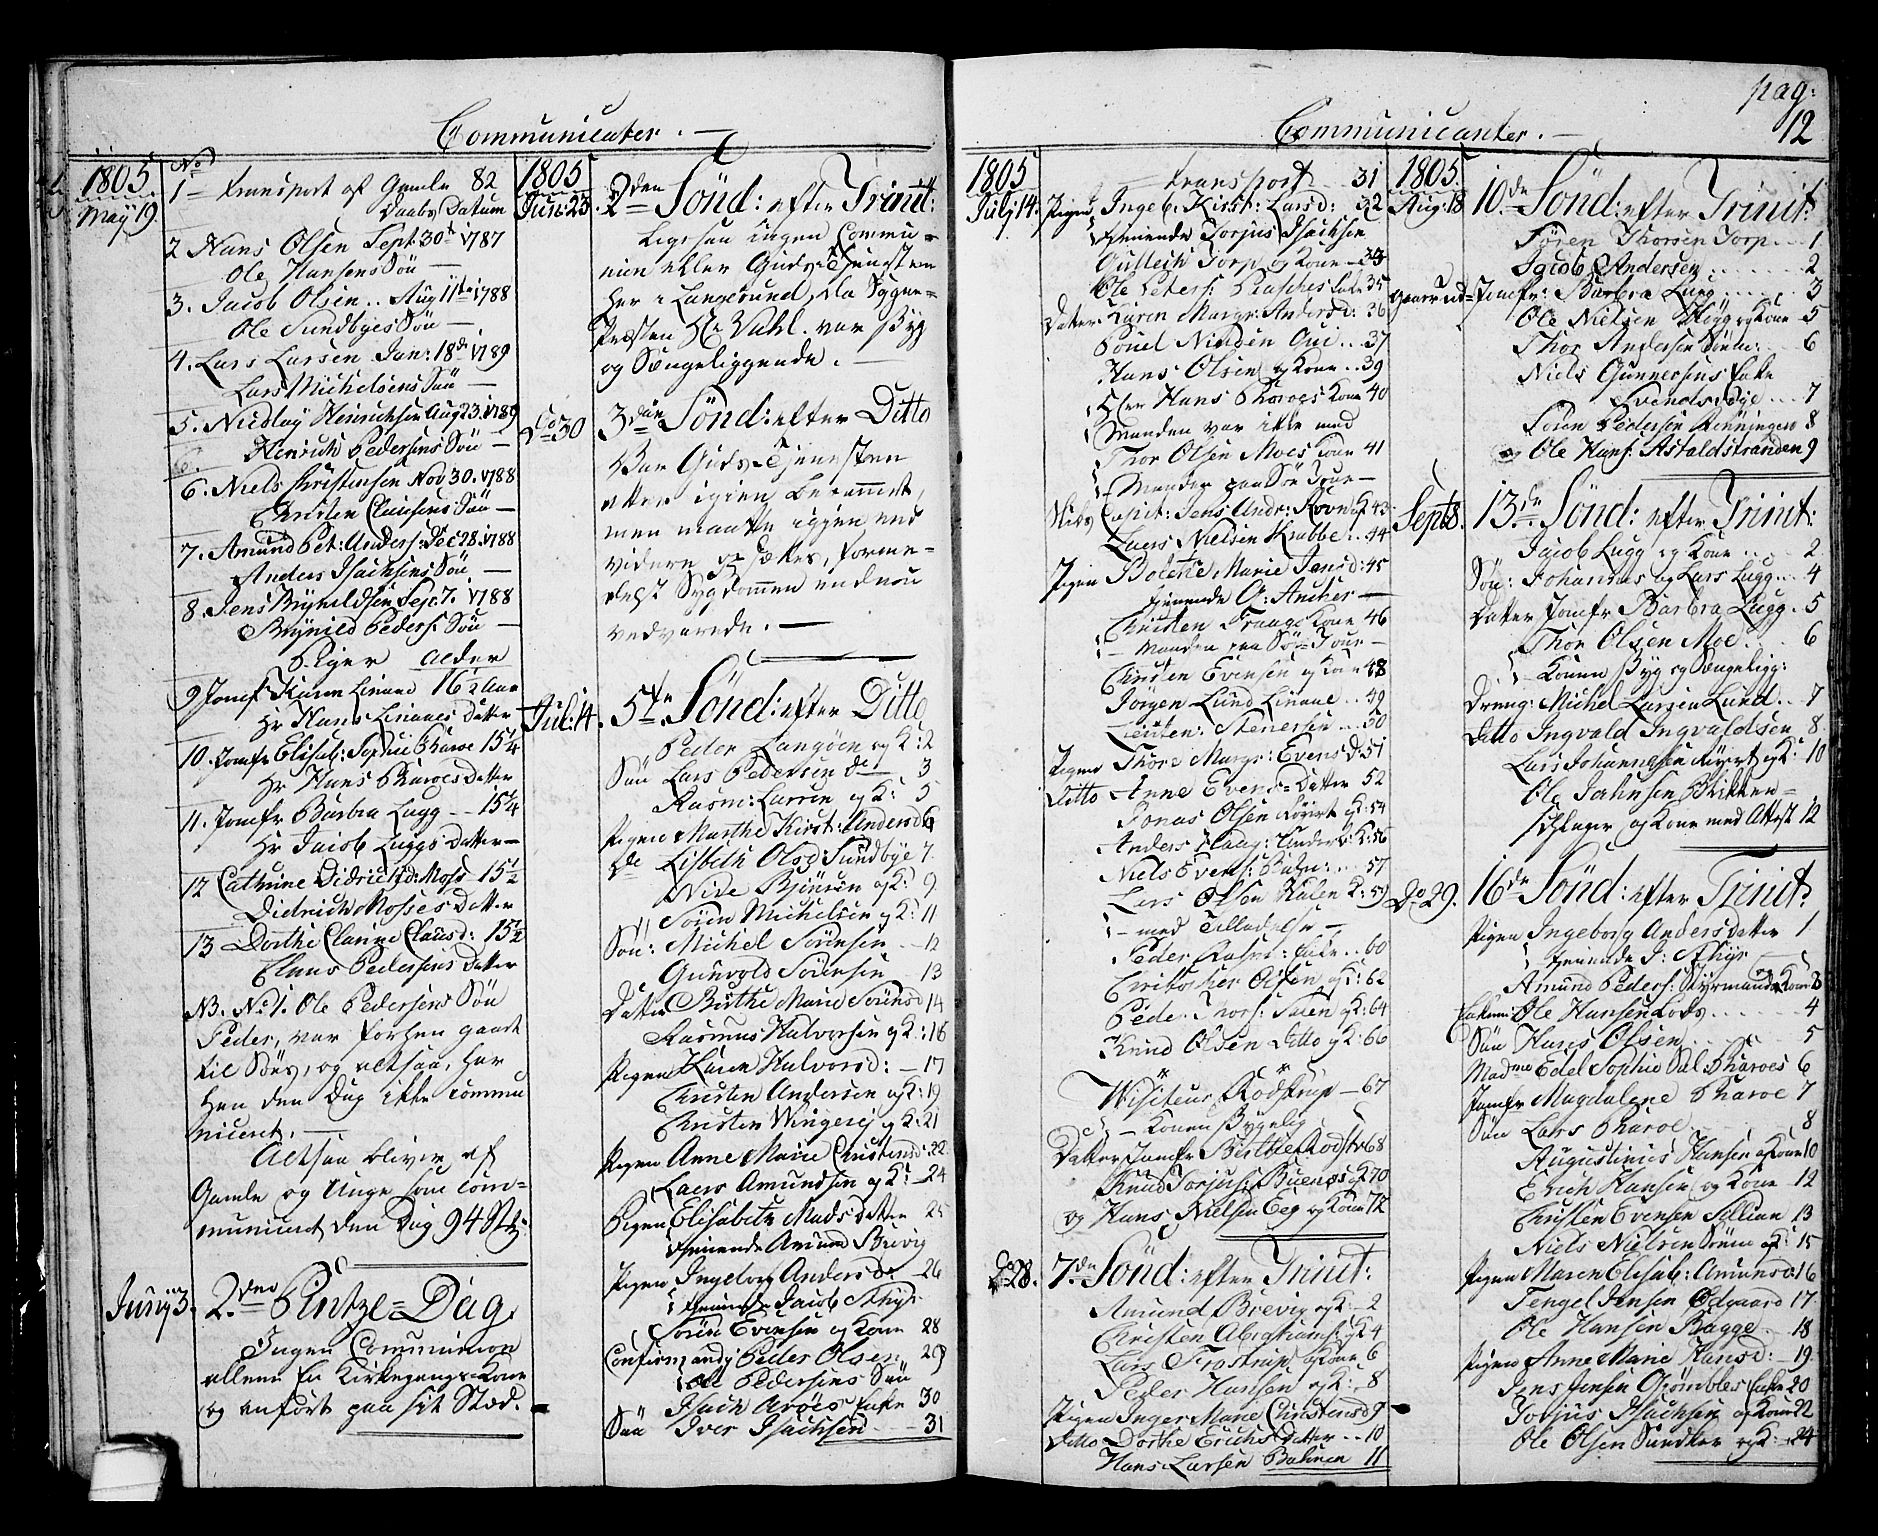 pag:
12
Communicanter.
1805
May 19.
No
1 – Transport af Gamle 82
Daabs Datum
2 Hans Olsen Sept: 30t 1787
Ole Hansens Søn
3. Jacob Olsen .. Aug 11te 1788
Ole Sundbyes Søn
4. Lars Larsen Jan: 18de 1789
Lars Michelsens Søn
5. Nicolay Heinrichsen Aug 23. 1789
Hinrich Pedersens Søn
6. Niels Christensen Nov 30. 1788
Christen Clausens Søn
7. Amund Pet: Anders: Dec 28. 1788
Anders Isachsens Søn
8. Jens Brynildsen Sep: 7. 1788
Brynild Peders: Søn
Piger Alder
9 Jomf: Karen Linaae 16½ Aar
Hr Hans Linaaes Datter
10. Jomfr Elisab: Sophie Pharoe 15¼
Hr Hans Pharoes Datter
11. Jomfr Barbra Lugg – 15¼
Hr Jacob Luggs Datter
12 Cathrine Didrichsd: Moss 15½
Didrich Mosses Datter
13 Dorthe Clarine Clausd: 15½
Claus Pedersens Datter
NB. No 1. Ole Pedersens Søn
Peder, var forhen gaaet
til Søes, og altsaa, har
han den Dag ikke commu
niceret.
Altsaa bliver af
Gamle og Unge som com=
municeret den Dag 94 Stk:
Junij 3.
2den Pintze=Dag.
Ingen Communion
allene en Kirkegangs-Kone
og anført paa sit Sted.
1805
Jun: 23.
2den Sönd: efter Trinit:
Ligesaa ingen Commu=
nion eller Guds-Tjenesten
her i Langesund, da Sogne=
Præsten Hr Wahl var syg
og Sengeliggende.
Do 30
3die Sönd: efter Ditto
Var Guds-Tjenesten
atter igien berammet,
men maatte igjen end
videre opsættes, forme=
delst Sygdommen endnu
vedvarede.
Jul: 14.
5te Sönd: efter Ditto
Peder Langöen og K: 2
Søn Lars Pedersen do 3
Rasm: Larsen og K: 5
Pigen Marthe Kirst: Andersd 6
do Lisbeth Olsd: Sundbye 7.
Nire Björnsen og K: 9
Sören Michelsen og K: 11
Søn: Michel Sörensen 12
do Gunvold Sörensen – 13
Datter Birthe Marie Sörensd 14
Rasmus Halvorsen og K: 16
Pigen Karen Halvorsd: – 17
Christen Andersen og K: 19
Christen Wingerej og K: 21
Pigen Anne Marie Christensd: 22
Laers Amundsen og K: – 24
Pigen Elisabeth Mads datter 25
tjenende Amund Brevig
Pigen Ingeborg Andersd: – 26
tjenende Jacob Athys
Sören Evensen og Kone 28
Confirmandj Peder Olsen 29
Ole Pedersens Søn
Isach Aröes Enke 30
Søn Iver Isachsen – 31
Communicanter.
1805
Julj 14.
Transport 31
Pigen Ingeb: Kirst: Larsd: 32
tjenende Torjus Isachsen
Gullech Torp og Kone – 34
Ole Peters: Plasches Enke 35
Datter Karen Margr: Andersd: 36
Pouel Nirsden Qui .. 37
Hans Olsen og Kone .. 39
Hr Hans Pharoes Kone 40
Manden var ikke med
Thor Olsen Moes Kone 41
Manden paa Sø Tour
Capit: Jens Andr: Rovn og K 43
Laers Nielsen Krabbe .. 44
Pigen Bolette Marie Jensd: 45
tjenende O: Ancher
Christen Fraags Kone 46
Manden paa Sø Tour
Christen Evensen og Kone 48
Jörgen Lund Linaae .. 49
Lieuten: Stenersen ... 50
Pigen Thore Margr: Evens D: 51
Ditto Anne Evens=Datter 52
Jonas Olsen Röjert og K: 54
Anders Haag: Kunderb: K: 56
Niels Evens: Bahn: ... 57
Lars Olsen Halen K: 59
med Tilladelse
Peder Rasm: Enke .. 60
Cristopher Olsen og K: 62
Peder Thors: Salen og K: 64
Knud Olsen Ditto og K: 66
Wisiteur Rodstrup – 67
Konen sygelig
Datter Jomfr Birthe Rodstr 68
Knud Torjus: Buenes og K 70
og Hans Nielsen Eeg og Kone 72
Do 28.
7de Sönd: efter Trinit:
Amund Brevig og K: – 2
Christen Abrahams: og K 4
Lars Trostrup og Kone 6
Peder Hansen og K: – 8
Pigen Inger Marie Christensd 9
Ditto Dorthe Erichs datter .. 10
Hans Larsen Bahnen 11
1805.
Aug: 18
10de Sönd: efter Trinit:
Sören Thorsen Torp ... 1
Jacob Andersen ...... 2
Jomfr: Barbra Lugg ...... 3
Ole Nielsen Kigg og Kone 5
Thor Andersen Sönin: 6
Niels Gunnersens Enke
Svendsöje ... 7
Sören Pedersen Rönningen 8
og Ole Hans: Astaldstranden 9
Sept 8.
13de Sönd: efter Trinit:
Jacob Lugg og Kone ... 2
Søn: Johannes og Lars Lugg ... 4
Datter Jomfr Barbra Lugg. 5
Thor Olsen Moe ... 6
Konen syg og Sengeligg:
Dreng: Michel Larsen Lund .. 7
Ditto Ingvald Ingvaldsen 8.
Lars Johannesen Röjert og K: 10
Ole Jahnsen Blikken=
slager og Kone med Attest 12
Do 29.
16de Sönd: efter Trinit:
Pigen Ingeborg Anders datter 1.
tjenende J: Athys
Amund Peders: Styrmand og Kone 3
Ole Hansen Lods ...... 4
Søn Hans Olsen ... 5
Madme Edel Sophie Sal Pharoes 6
Jomfr Magdalene Pharoe 7
Søn Lars Pharoe ... 8
Augustinus Hansen og Kone 10
Erich Hansen og Kone – 12
Christen Evensen Tillian 13
Niels Nielsen Sönin og K: 15
Pigen Maren Elisab: Amunsd: 16
Tengel Jensen Ödgaard 17
Ole Hansen Bagge – 18
Pigen Anne Marie Hansd: – 19
Jens Jensen Grömbles Enke 20
Torjus Isachsen og Kone 22
Ole Olsen Sundker og K: – 24